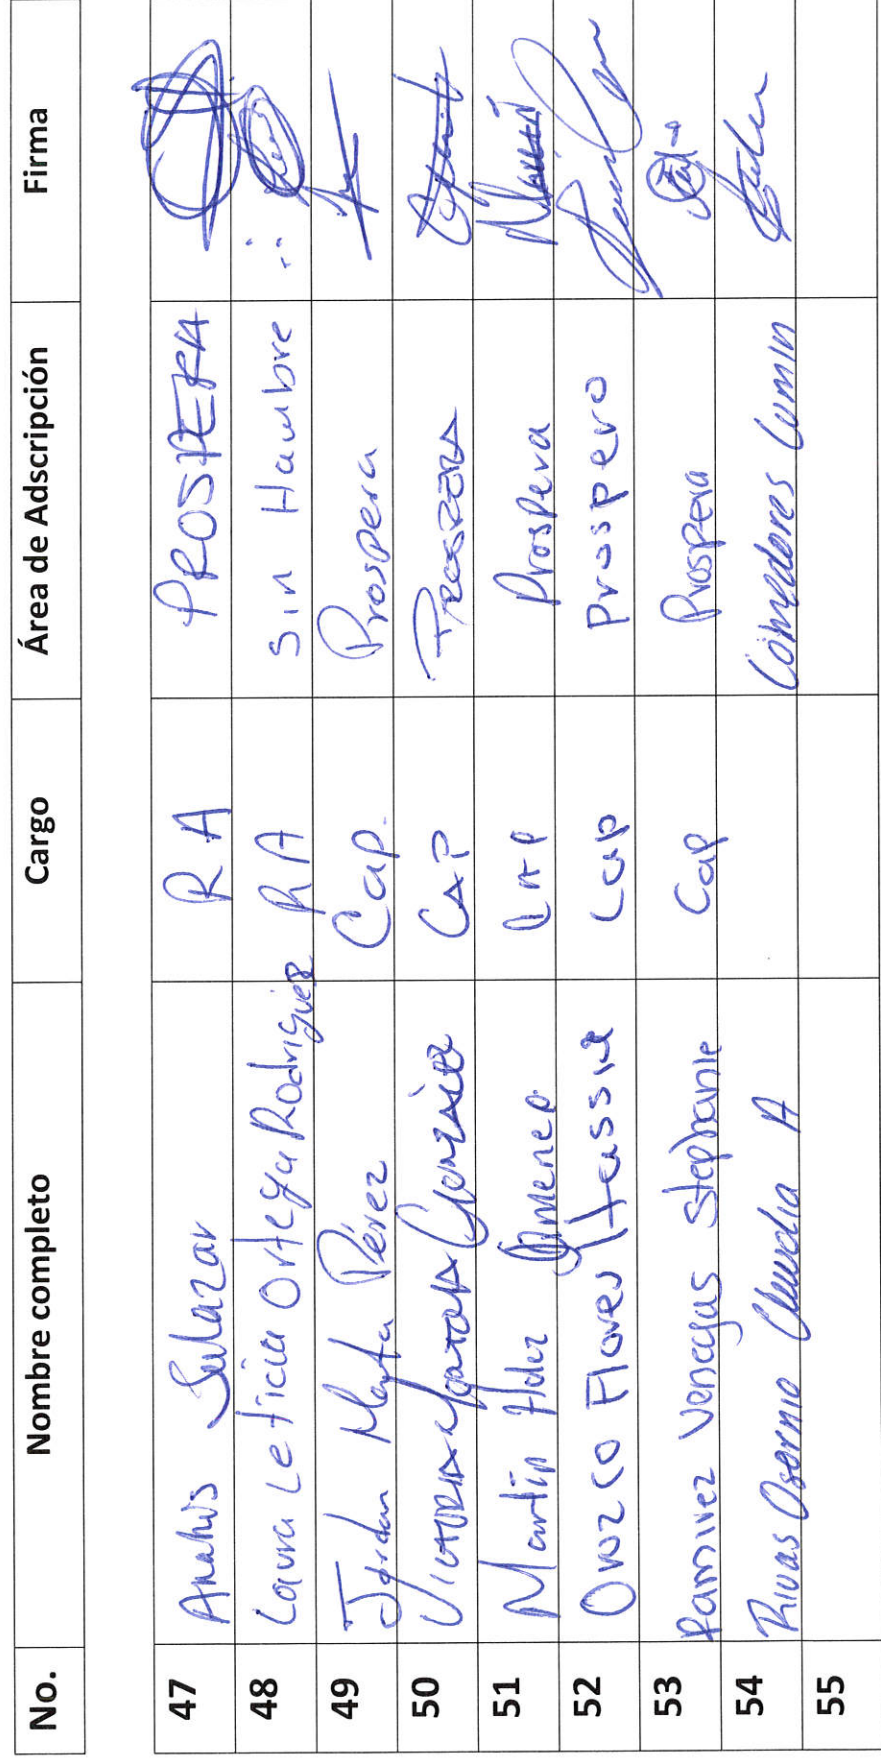 No. Nombre completo Cargo Área de Adscripción Firma
47 Anahis Salazar R A PROSPERA
48 Laura Leticia Ortega Rodriguez RA Sin Hambre
49 Jordan Mayta Pérez Cap. Prospera
50 VICTORIA González CAP PROSPERA
51 Martin Hdez Jimenez CAP Prospera
52 Orozco Flores Cap Prospero
53 Ramirez Venegas Stephanie Cap Prospera
54 Rivas Osornio Claudia A Comedores Comun
55